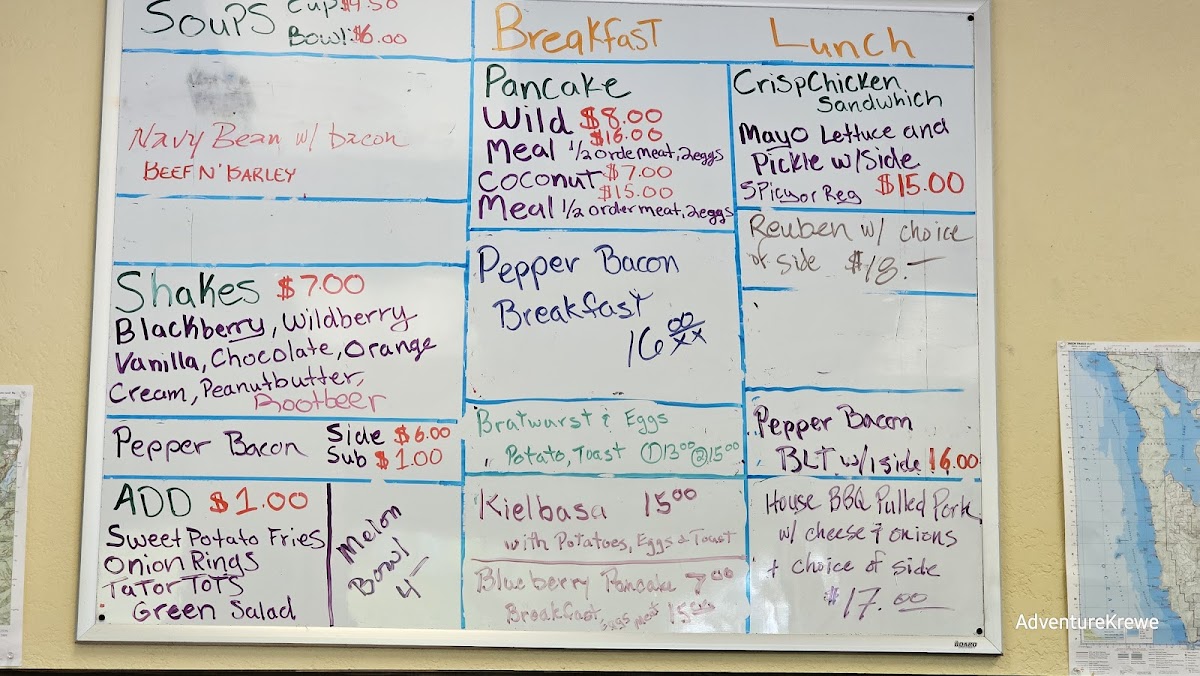 Soups Cup $4.50
Bowl $6.00
Navy Bean w/ bacon
BEEF N' BARLEY
Shakes $7.00
Blackberry, Wildberry
Vanilla, Chocolate, Orange
Cream, Peanutbutter,
Rootbeer
Pepper Bacon Side $6.00
Sub $1.00
ADD $1.00
Sweet Potato Fries
Onion Rings
Tator Tots
Green Salad
Melon
Bowl
4-
Breakfast
Pancake
Wild $8.00
$16.00
Meal 1/2 orde meat, 2eggs
Coconut $7.00
$15.00
Meal 1/2 order meat, 2eggs
Pepper Bacon
Breakfast
16 00/xx
Bratwurst & Eggs
Potato, Toast ① 13⁰⁰ ② 15⁰⁰
Kielbasa 15⁰⁰
with Potatoes, Eggs & Toast
Blueberry Pancake 7⁰⁰
Breakfast, eggs meat 15⁰⁰
Lunch
Crisp Chicken
Sandwhich
Mayo Lettuce and
Pickle w/Side
Spicy or Reg $15.00
Reuben w/ choice
of side $18.—
Pepper Bacon
BLT w/1side 16.00
House BBQ Pulled Pork
w/ cheese & onions
+ choice of side
$17.00
BOARD
AdventureKrewe